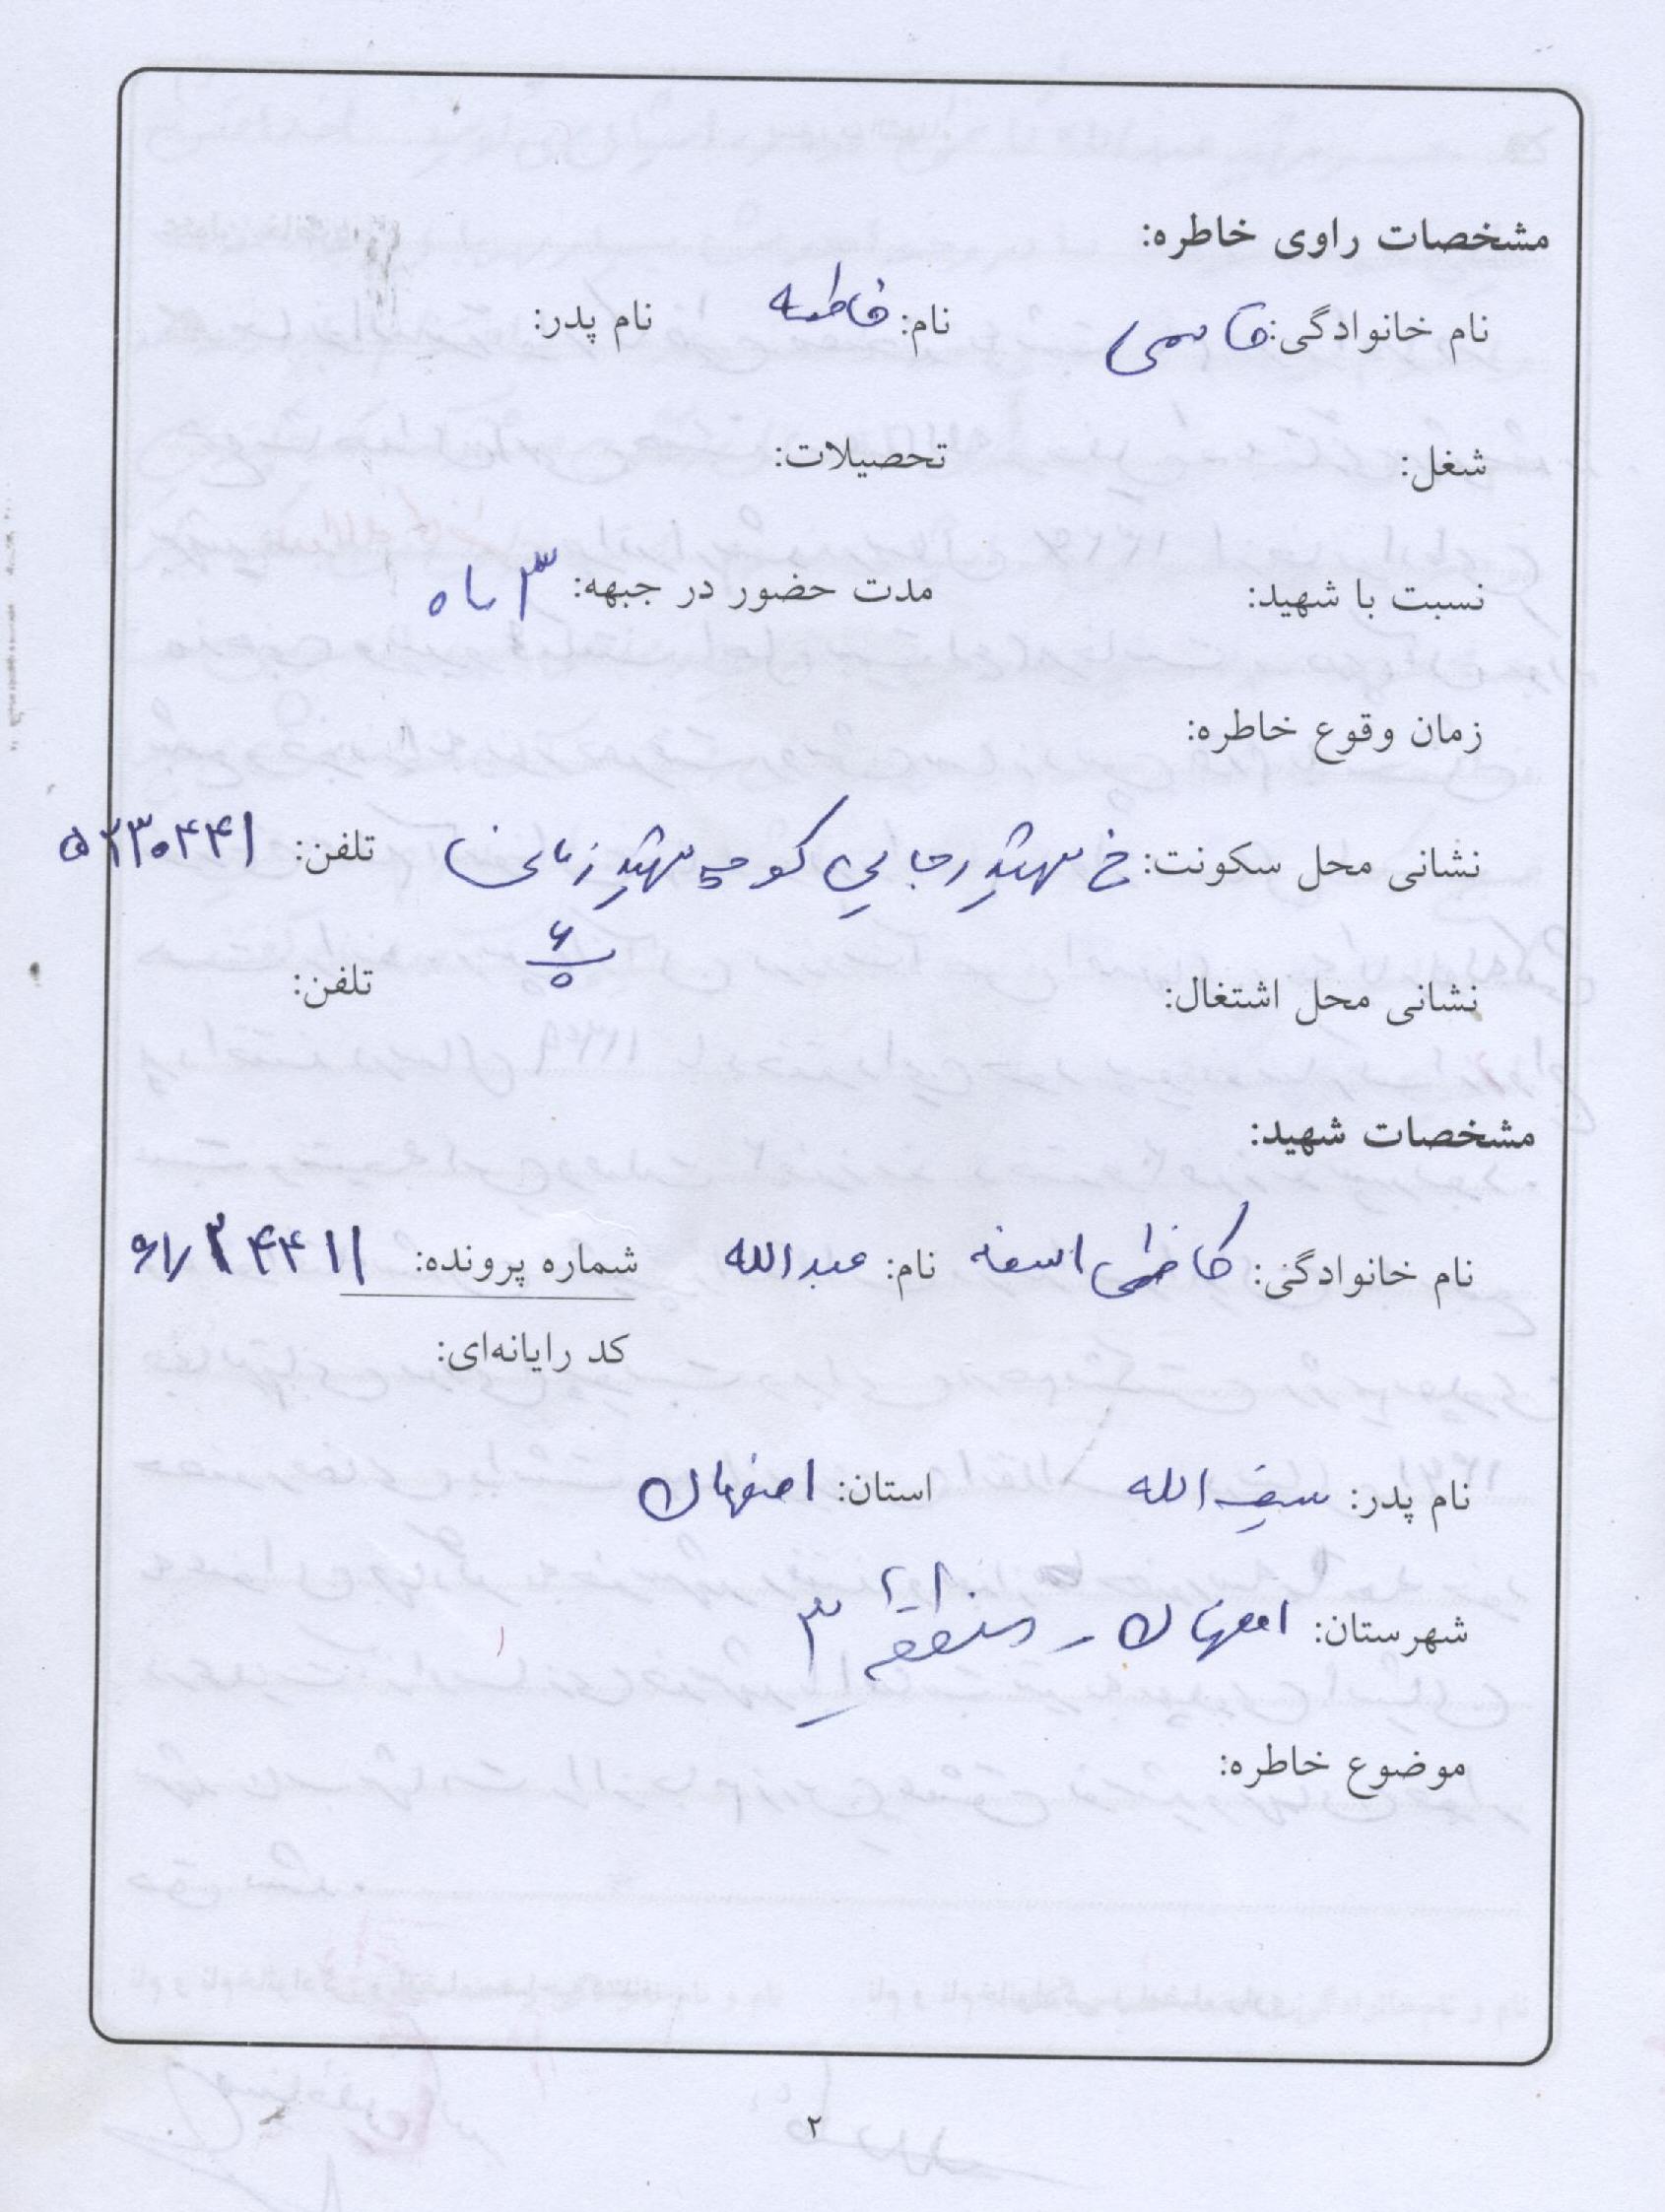 مشخصات راوی خاطره:
نام خانوادگی: قاسمی نام: فاطمه نام پدر:
شغل: تحصیلات:
نسبت با شهید: مدت حضور در جبهه: ۳ ماه
زمان وقوع خاطره:
نشانی محل سکونت: خ شهید رجایی کوچه شهید زمانی تلفن: ۵۲۳۰۴۴۱
نشانی محل اشتغال: تلفن:
مشخصات شهید:
نام خانوادگی: کاظمی اسفه نام: عبدالله شماره پرونده:
کد رایانه‌ای:
نام پدر: سیف الله استان: اصفهان
شهرستان: اصفهان - منطقه ۳
موضوع خاطره:
۲